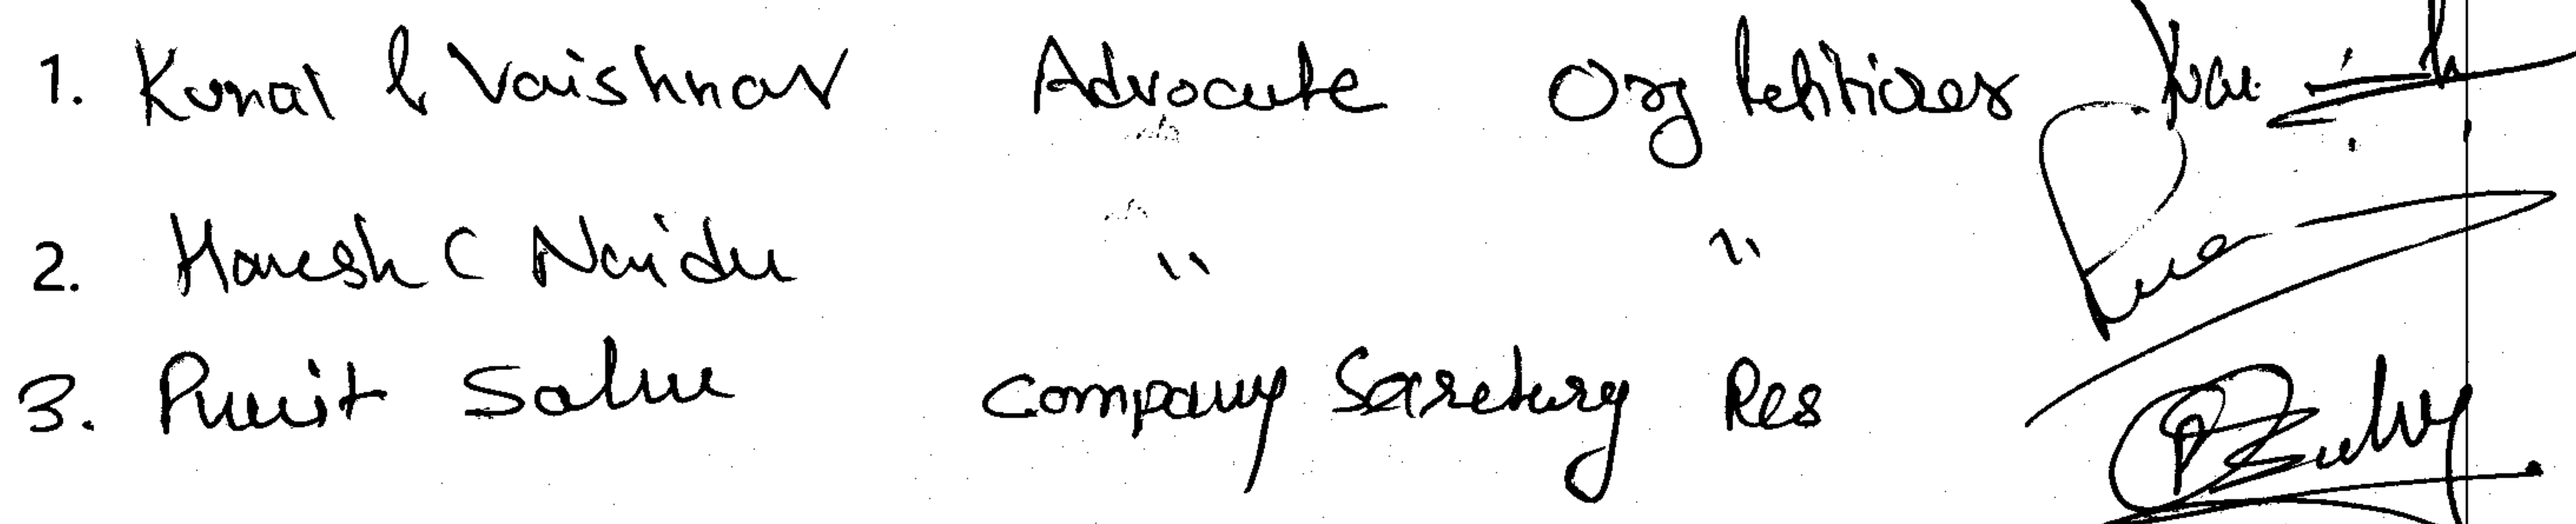 1. Kunal l Vaishnav Advocate Org Petitioner
2. Haresh C Naidu " "
3. Punit Sahu Company Secretary Res